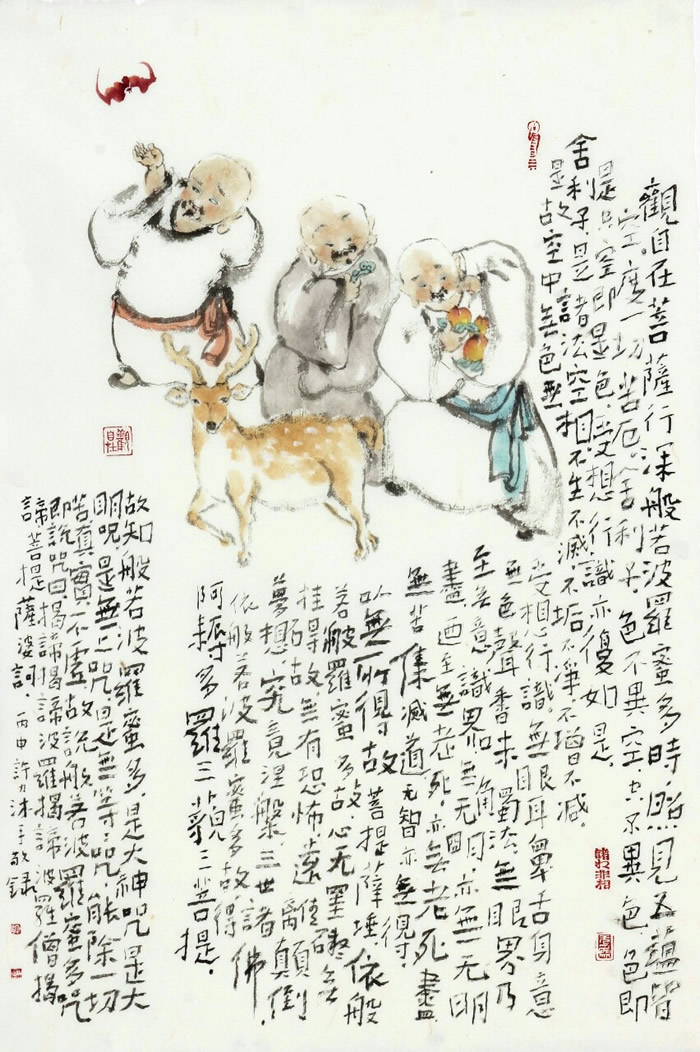 觀自在菩薩行深般若波羅蜜多時照見五蘊皆
空度一切苦厄舍利子色不異空空不異色色即
是空空即是色受想行識亦復如是
舍利子是諸法空相不生不滅不垢不淨不增不減
是故空中無色無
受想行識無眼耳鼻舌身意
無色聲香味觸法無眼界乃
至無意識界無無明亦無无明
盡迺至無老死亦無老死盡
無苦集滅道无智亦無得
以無所得故菩提薩埵依般
若波羅蜜多故心无罣礙無
挂碍故無有恐怖遠離顛倒
夢想究竟涅槃三世諸佛
依般若波羅蜜多故得
阿耨多羅三藐三菩提
故知般若波羅蜜多是大神咒是大
明咒是無上咒是無等等咒能除一切
苦真實不虛故說般若波羅蜜多咒
即說咒曰揭諦揭諦波羅揭諦波羅僧揭
諦菩提薩婆訶 丙申許力沐手敬録
觀自在